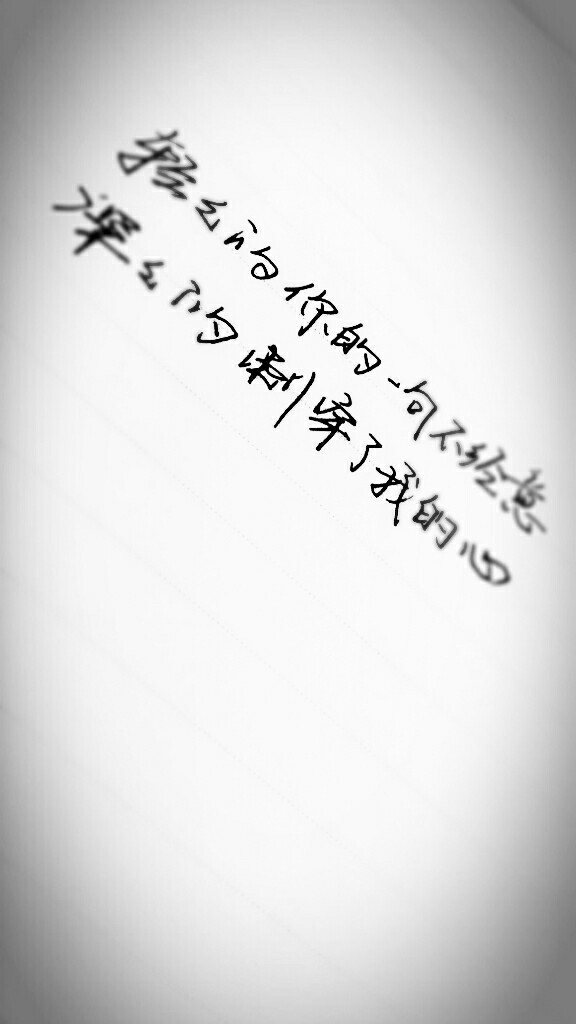 轻轻的你的一句不经意
深深的刺穿了我的心